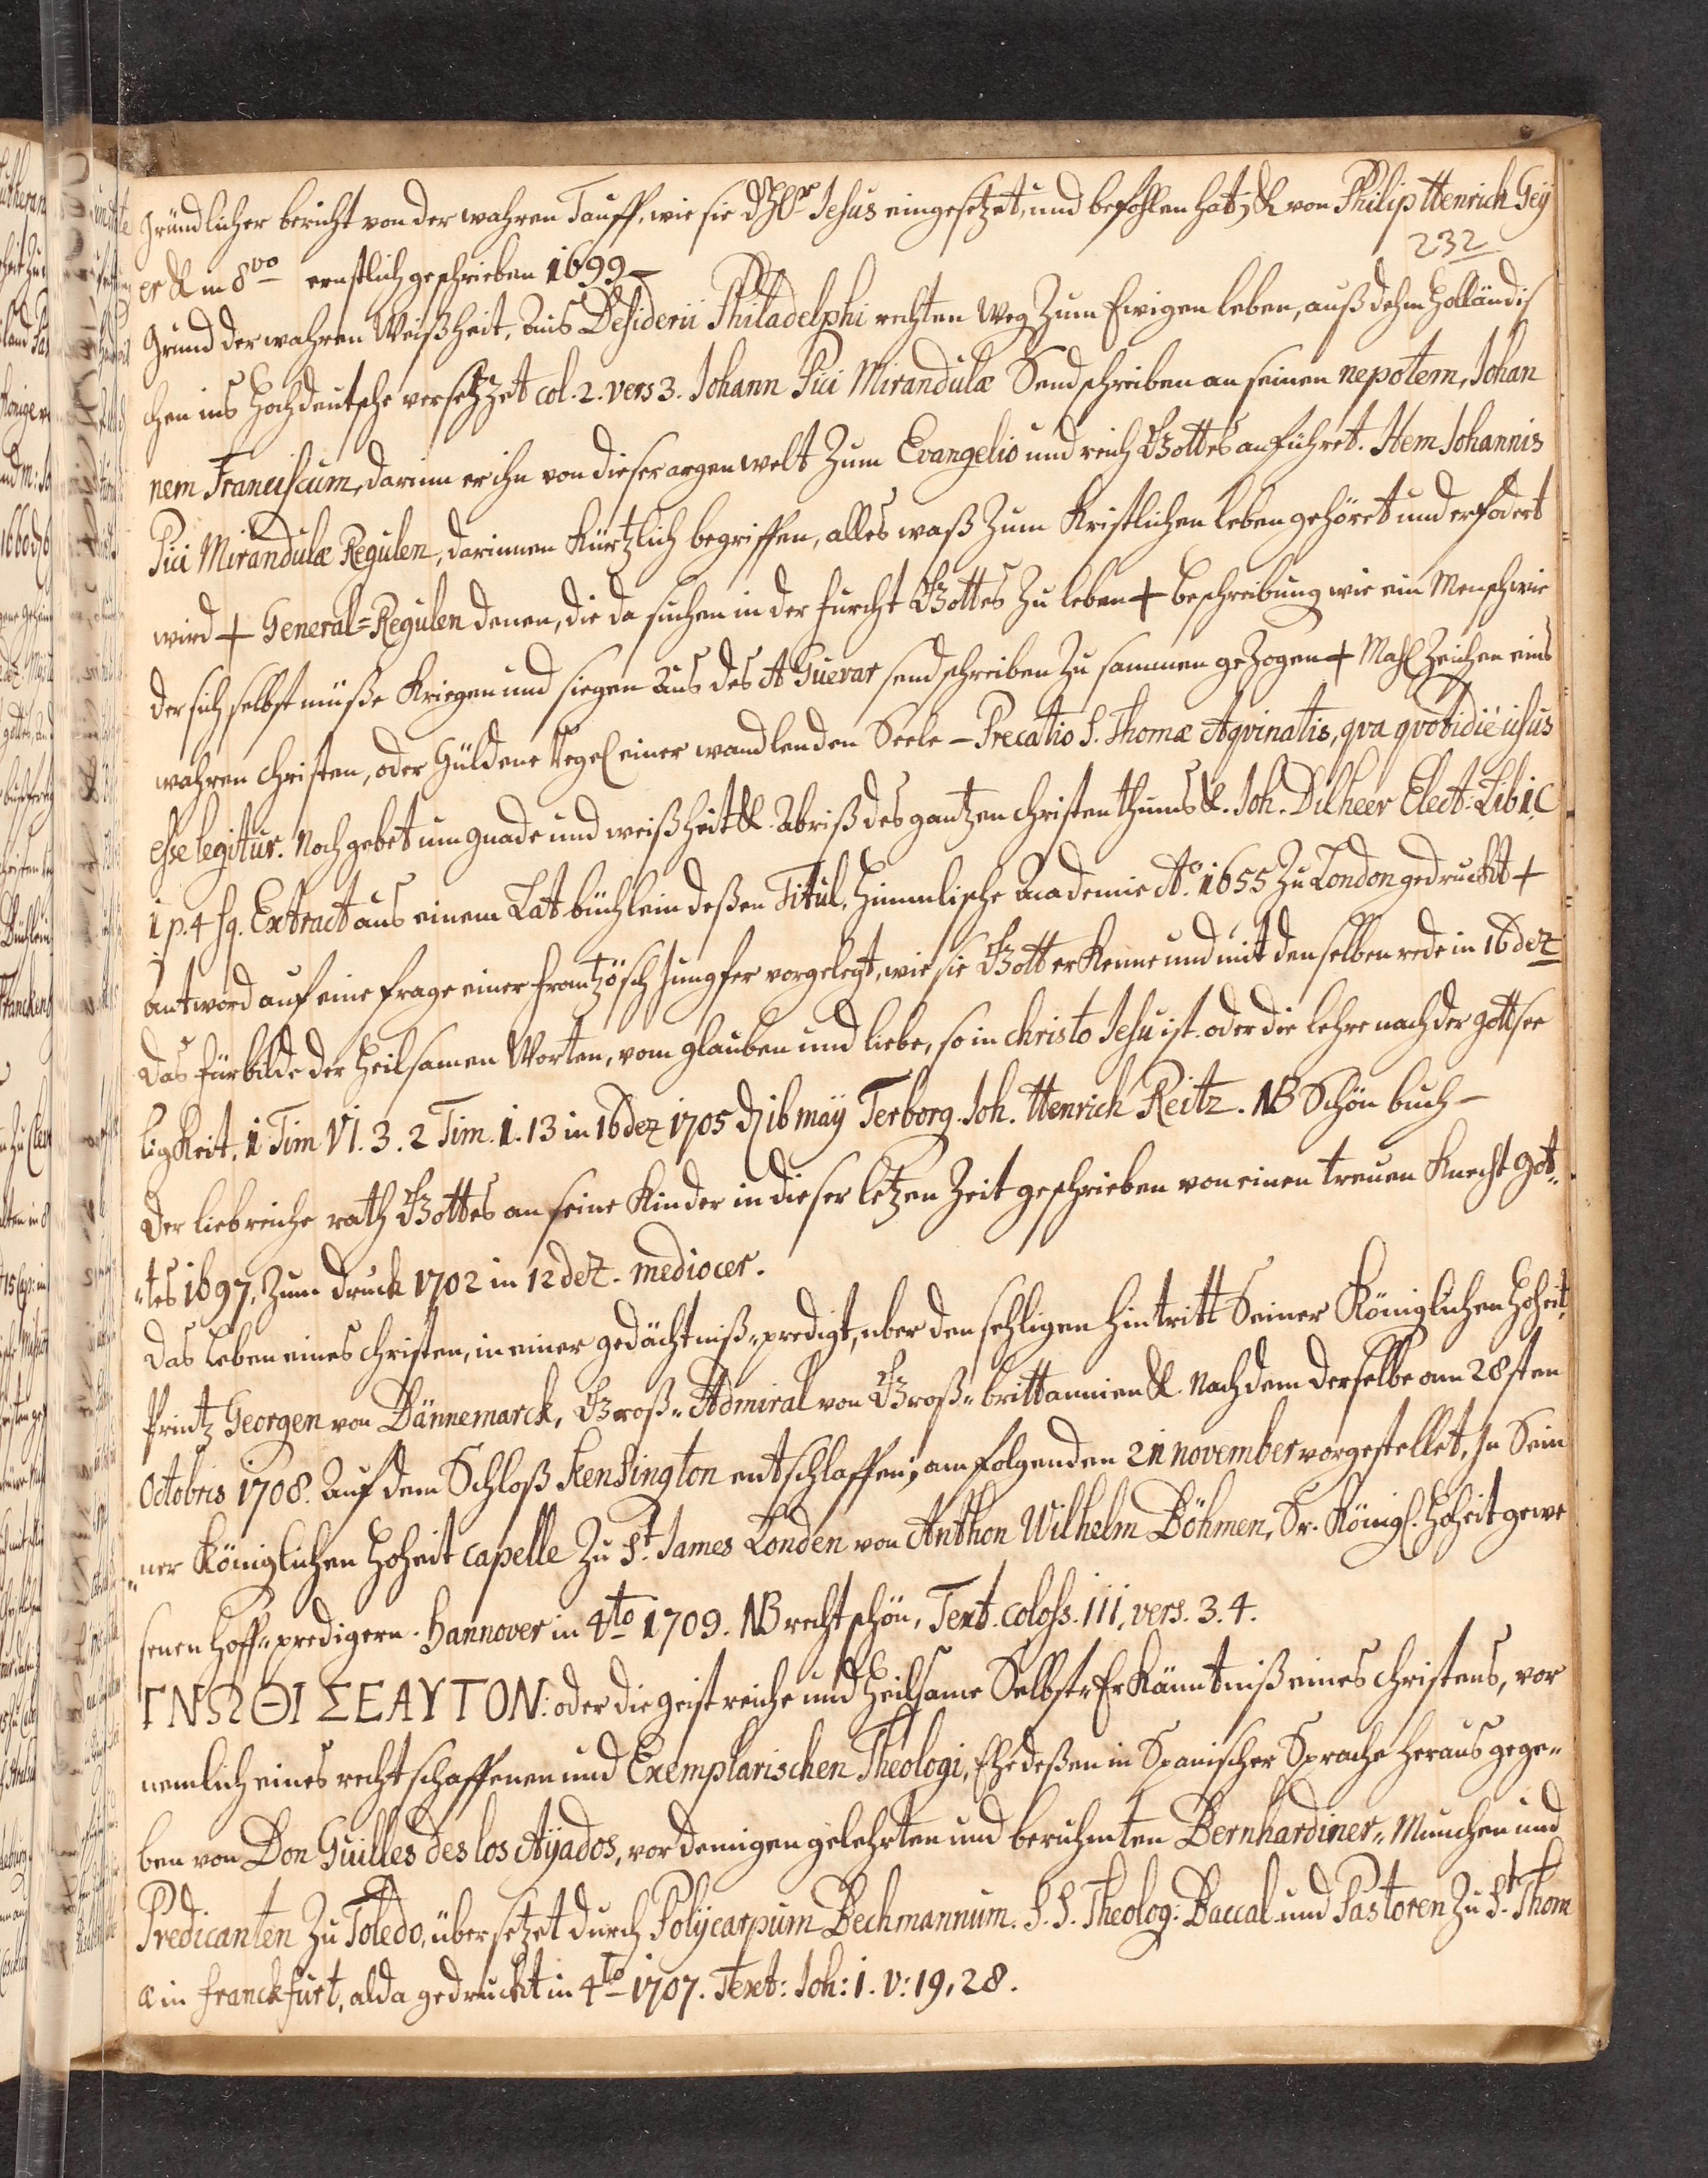 gründlicher bericht von der wahren Tauff, wie sie d H Er Jesus eingesetzet, und befohlen hat, & von Philip Henrich Geÿ
232
er & in 8vo ernstlich geschrieben 1699 –
Grund der wahren Weißheit, aus Desiderii Philadelphi rechten weg zum Ewigen leben, auß dehm Holländis
chen ins Hochdeutsche versetzzet col. 2. vers 3. Johann Pici Mirandulæ Sendschreiben an seinen nepotem, Johan
nem Franciscum, darinn er ihn von dieser argen welt zum Evangelio und reich Gottes anführet. Item Johannis
Pici Mirandulæ Regulen, darinnen kürtzlich begriffen, alles waß zum Kristlichen leben gehöret und erfodert
wird + General=Regulen denen, die da suchen in der furcht Gottes zu leben + beschreibung wie ein Mensch wie
der sich selbst müße kriegen und siegen aus des A Guevar sendschreiben zu sammen gezogen + Mahlzeichen eins
wahren christen, oder Güldene Regel einer wandlenden Seele – Precatio S. Thomæ Aqvinatis, qva qvotidie usus
esse legitur. Noch gebet um gnade und weißheit &. Abriß des gantzen christenthums &. Joh. Dilheer Elect. Lib i, C
i p. 4 sq. Extract aus einem Lat büchlein deßen Titul, himmlische Academie Ao. 1655 zu London gedruckt +
antword auf eine frage einer frantzösch Jungfer vorgelegt, wie sie Gott erkenne und mit denselben rede in 16 dez
Das fürbilde der heilsamen Worten, vom glauben und liebe, so in christo Jesu ist. oder die lehre nach der gottsee
ligkeit, i Tim VI. 3. 2 Tim. i. 13 in 16 dez 1705 d 16 maÿ Terborg. Joh. Henrich Reitz. NB Schön buch –
Der liebreiche rath Gottes an seine Kinder in dieser letzen Zeit geschrieben von einen treuen Knecht Got„
„tes 1697, zum druck 1702 in 12 dez. mediocer.
Das leben eines christen, in einer gedächtniß„predigt, uber den sehligen hintritt Seiner Königlichen Hoheit,
Printz Georgen von Dännemarck, Groß„Admiral von Groß„brittannien &. Nachdem derselbe am 28sten
Octobris 1708. auf dem Schloß Kensington entschlaffen; am folgenden 21 november vorgestellet, In Sein
„ner Königlichen Hoheit capelle zu St. James Londen von Anthon Wilhelm Böhmen, Sr. Königl. Hoheit gewe
senen Hoff„predigern. Hannover in 4to 1709. NB recht schön, Text. coloss. iii, vers. 3. 4.
ΓΝΩΘΙ ΣΕΑΥΤΟΝ: oder die geistreiche und heilsame Selbst„Erkänntniß eines christens, vor
nemlich eines rechtschaffenen und Exemplarischen Theologi, Ehedeßen in Spanischer Sprache heraus gege„
ben von Don Guilles des los Aÿados, vor denigen gelehrten und beruhmten Bernhardiner„Munchen und
Predicanten zu Toledo, übersetzet durch Polÿcarpum Bechmannum. S. S. Theolog: Baccal. und Pastoren zu St. Thom
æ in Franckfurt, alda gedruckt in 4to 1707. Text: Joh: i. v: 19, 28.